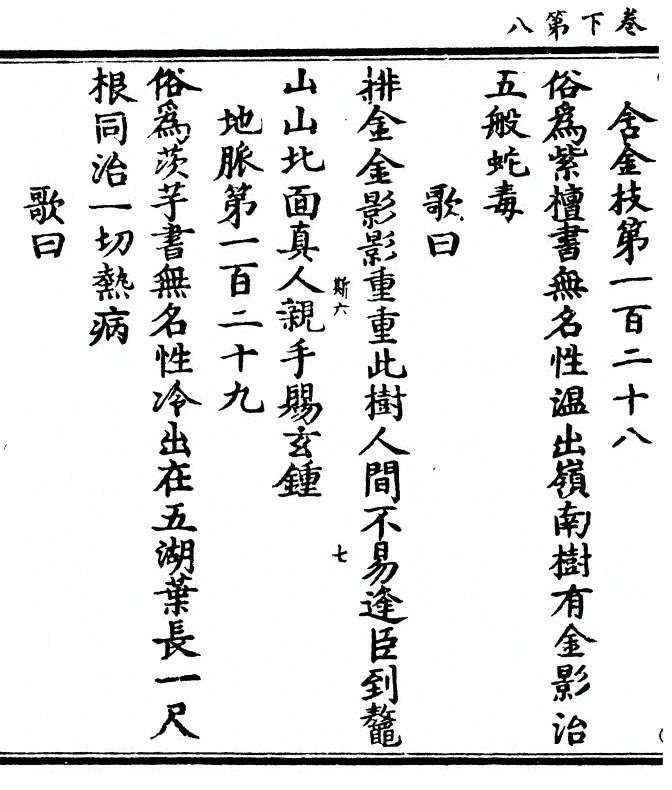 卷下第八
含金技第一百二十八
俗爲紫檀書無名性温出嶺南樹有金影治
五般蛇毒
歌曰
排金金影影重重此樹人間不易逢臣到鼇
斯六
七
山山北面真人親手賜玄鍾
地脈第一百二十九
俗爲茨芋書無名性冷出在五湖葉長一尺
根同治一切熱病
歌曰